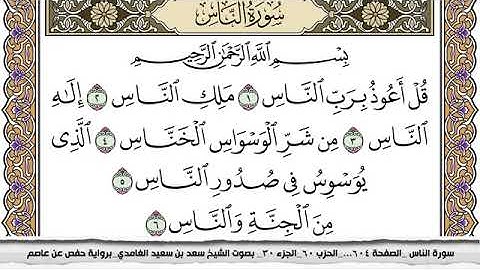 سُورَةُ النَّاسِ
بِسْمِ ٱللَّهِ ٱلرَّحْمَٰنِ ٱلرَّحِيمِ
قُلْ أَعُوذُ بِرَبِّ ٱلنَّاسِ ١ مَلِكِ ٱلنَّاسِ ٢ إِلَٰهِ
ٱلنَّاسِ ٣ مِن شَرِّ ٱلْوَسْوَاسِ ٱلْخَنَّاسِ ٤ ٱلَّذِى
يُوَسْوِسُ فِى صُدُورِ ٱلنَّاسِ ٥
مِنَ ٱلْجِنَّةِ وَٱلنَّاسِ ٦
سورة الناس _الصفحة ٦٠٤_... الحزب ٦٠_الجزء ٣٠_ بصوت الشيخ سعد بن سعيد الغامدي_برواية حفص عن عاصم